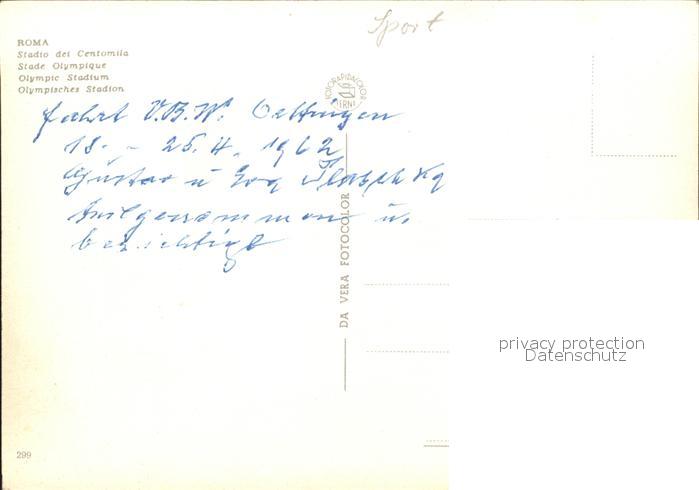 Sport
ROMA
Stadio dei Centomila
Stade Olympique
Olympic Stadium
Olympisches Stadion
FOTORAPIDACOLOR
TERNI
fahrt V.B.W. Oettingen
18. - 25. 4. 1962
Gustav u
teilgenommen u.
besichtigt
DA VERA FOTOCOLOR
privacy protection
Datenschutz
299